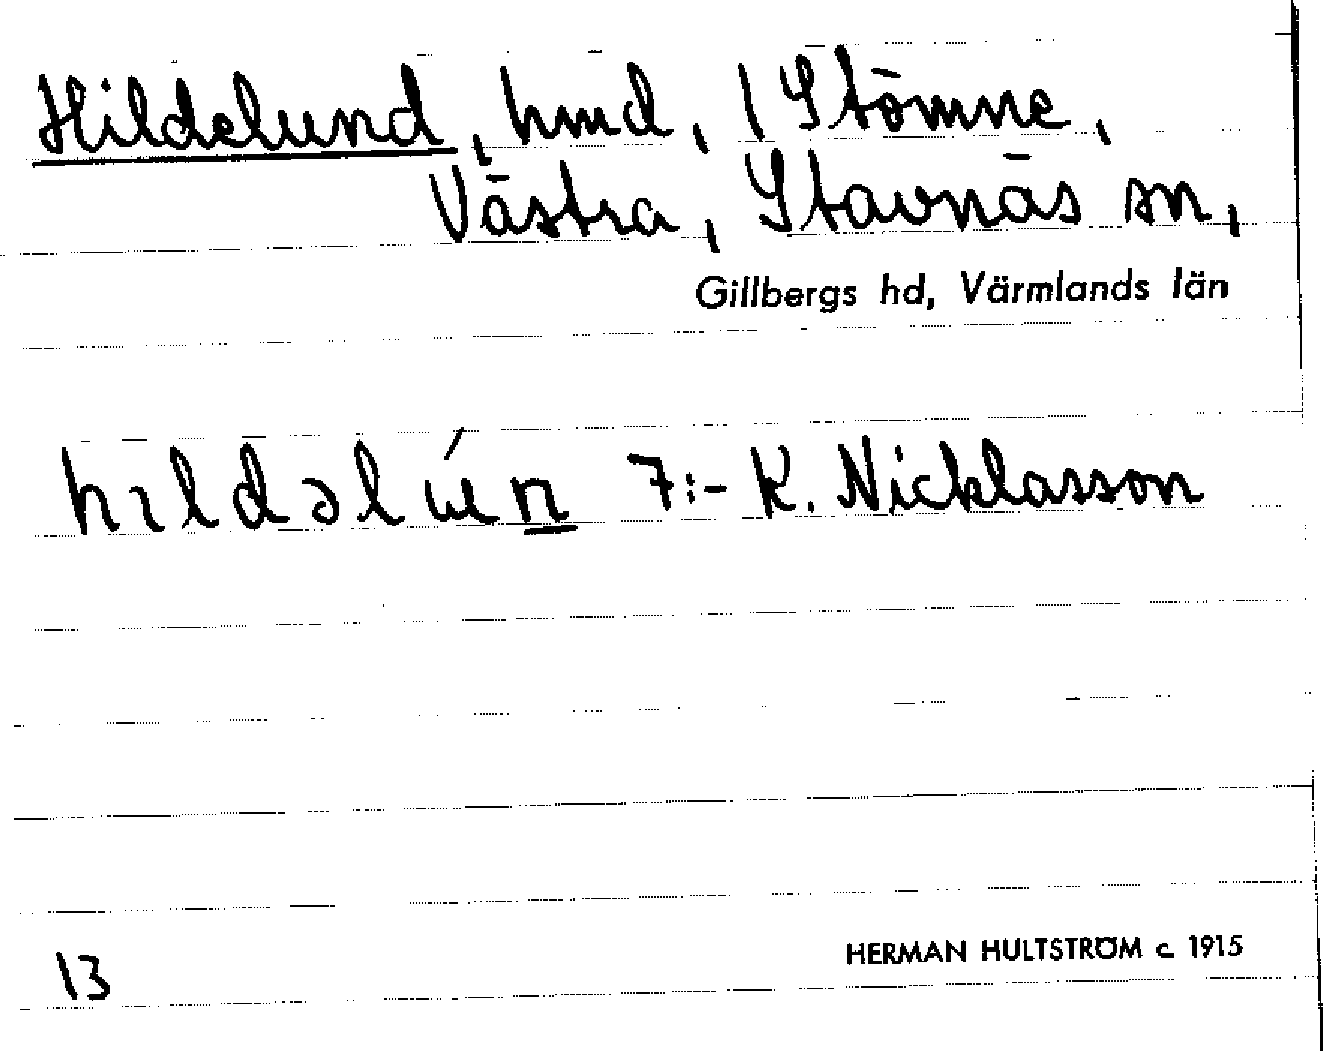 Hildelund, hmd, 1 Stömne,
Västra, Stavnäs sn,
Gillbergs hd, Värmlands län
hıldəlúen 7:- K. Nicklasson
13
HERMAN HULTSTRÖM c. 1915